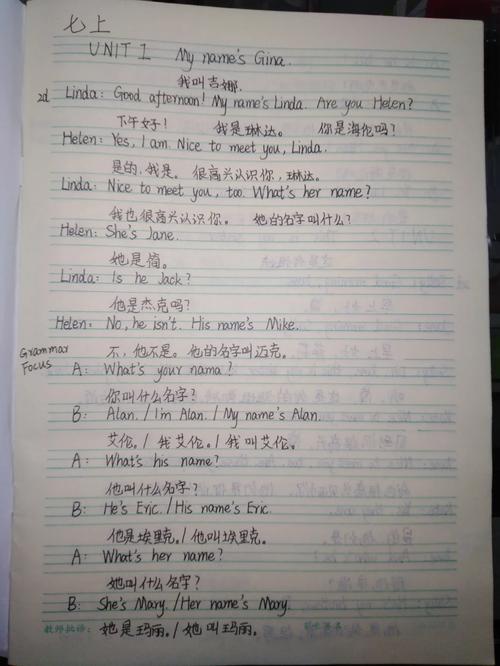 七上
UNIT 1 My name's Gina.
我叫吉娜.
2d Linda: Good afternoon! My name's Linda. Are you Helen?
下午好! 我是琳达。 你是海伦吗?
Helen: Yes, I am. Nice to meet you, Linda.
是的,我是。 很高兴认识你,琳达。
Linda: Nice to meet you, too. What's her name?
我也很高兴认识你。 她的名字叫什么?
Helen: She's Jane.
她是简。
Linda: Is he Jack?
他是杰克吗?
Helen: No, he isn't. His name's Mike.
不,他不是。他的名字叫迈克。
Grammar Focus
A: What's your nama?
你叫什么名字?
B: Alan. / I'm Alan. / My name's Alan.
艾伦。/ 我艾伦。/ 我叫艾伦。
A: What's his name?
他叫什么名字?
B: He's Eric. / His name's Eric.
他是埃里克。/ 他叫埃里克。
A: What's her name?
她叫什么名字?
B: She's Mary. / Her name's Mary.
教师批语: 她是玛丽。/ 她叫玛丽。